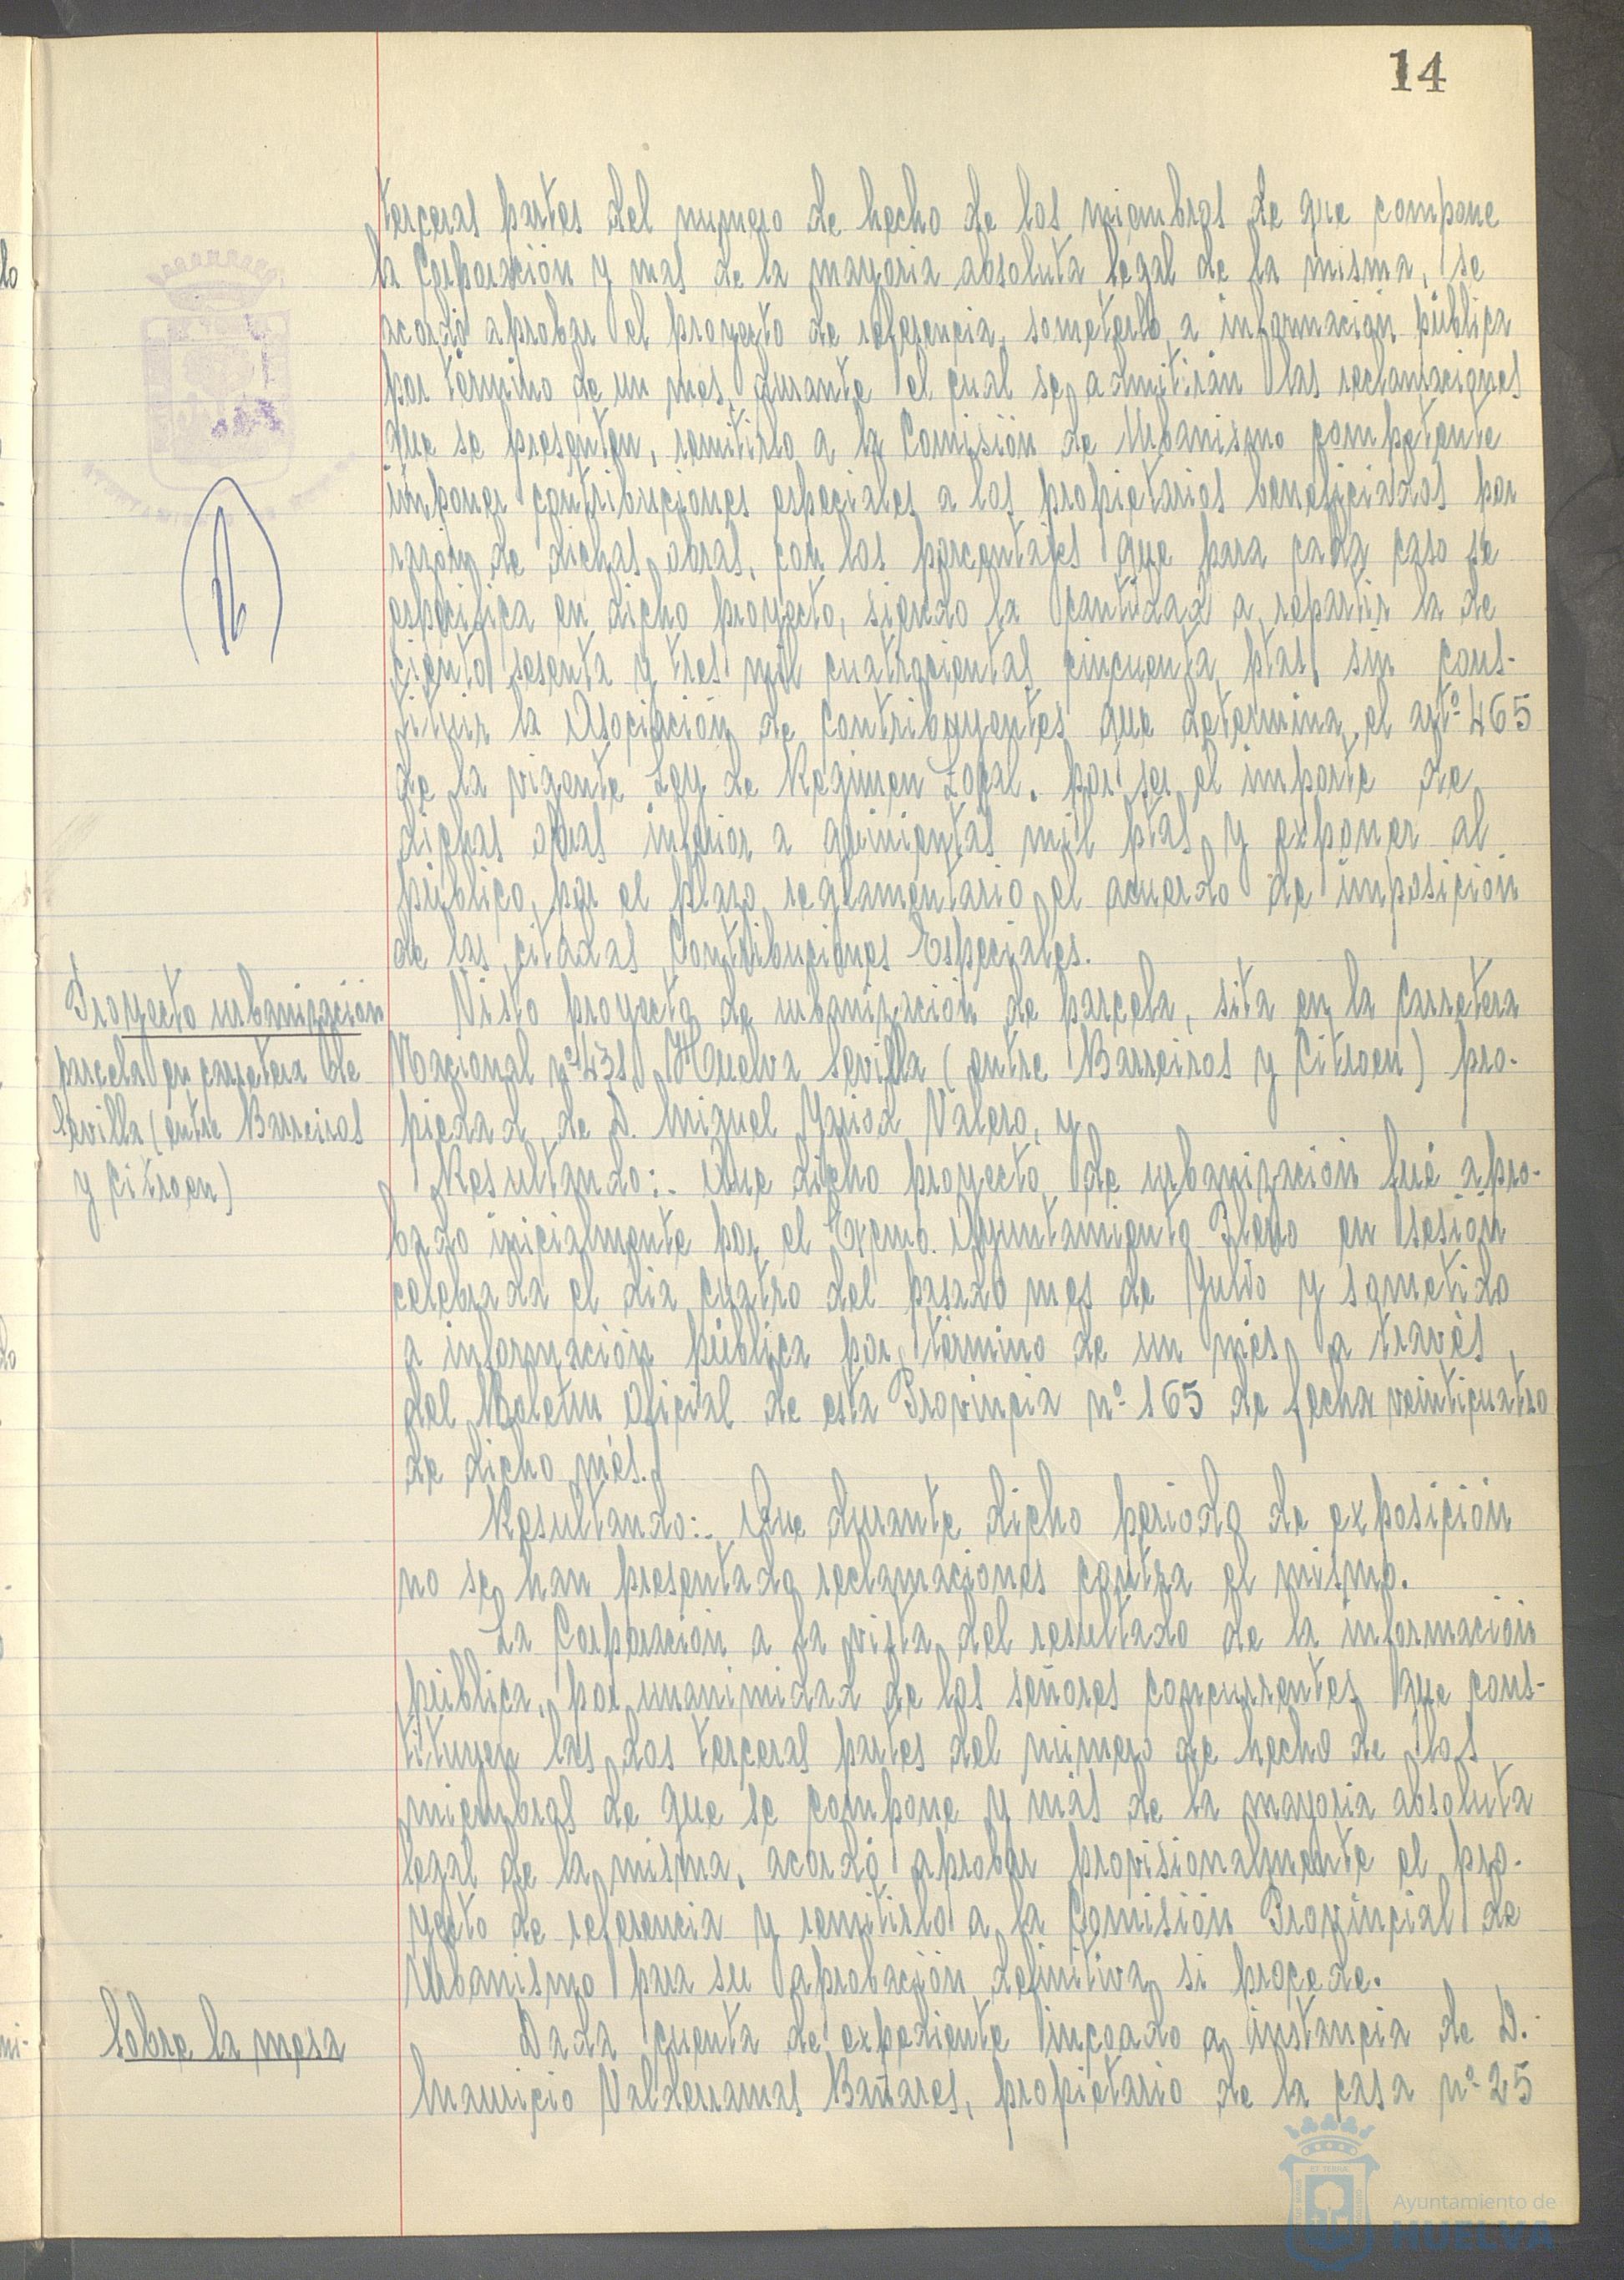 14
terceras partes del numero de hecho de los miembros de que compone
la Corporación y mas de la mayoria absoluta legal de la misma, se
acordó aprobar el proyecto de referencia, someterlo a información pública
por término de un mes, durante el cual se admitirán las reclamaciones
que se presenten, remitirlo a la Comisión de Urbanismo competente
imponer contribuciones especiales a los propietarios beneficiados por
razón de dichas obras, con los porcentajes que para cada caso se
especifica en dicho proyecto, siendo la cantidad a repartir la de
ciento sesenta y tres mil cuatrocientas cincuenta ptas, sin cons-
tituir la Asociación de Contribuyentes que determina el artº 465
de la vigente Ley de Regimen Local, por ser el importe de
dichas obras inferior a quinientas mil ptas y exponer al
público, por el plazo reglamentario el acuerdo de imposición
de las citadas Contribuciones Especiales.
Proyecto urbanización
parcela en carretera de
Sevilla (entre Barreiros
y Citroen)
Visto proyecto de urbanización de parcela, sita en la Carretera
Nacional nº 431, Huelva Sevilla (entre Barreiros y Citroen) pro-
piedad de D. Miguel Valero, y
Resultando:- Que dicho proyecto de urbanización fué apro-
bado inicialmente por el Excmo. Ayuntamiento Pleno en sesión
celebrada el dia cuatro del pasado mes de Julio y sometido
a información pública por término de un mes, a través
del Boletín Oficial de esta Provincia nº 165 de fecha veinticuatro
de dicho més.
Resultando:- Que durante dicho periodo de exposición
no se han presentado reclamaciones contra el mismo.
La Corporación a la vista del resultado de la información
pública, por unanimidad de los señores concurrentes que cons-
tituyen las dos terceras partes del número de hecho de los
miembros de que se compone y más de la mayoria absoluta
legal de la misma, acordó aprobar provisionalmente el pro-
yecto de referencia y remitirlo a la Comisión Provincial de
Urbanismo para su aprobación definitiva si procede.
Sobre la mesa
Dada cuenta de expediente incoado a instancia de D.
Mauricio Valderramas Bañares, propietario de la casa nº 25
Ayuntamiento de
HUELVA